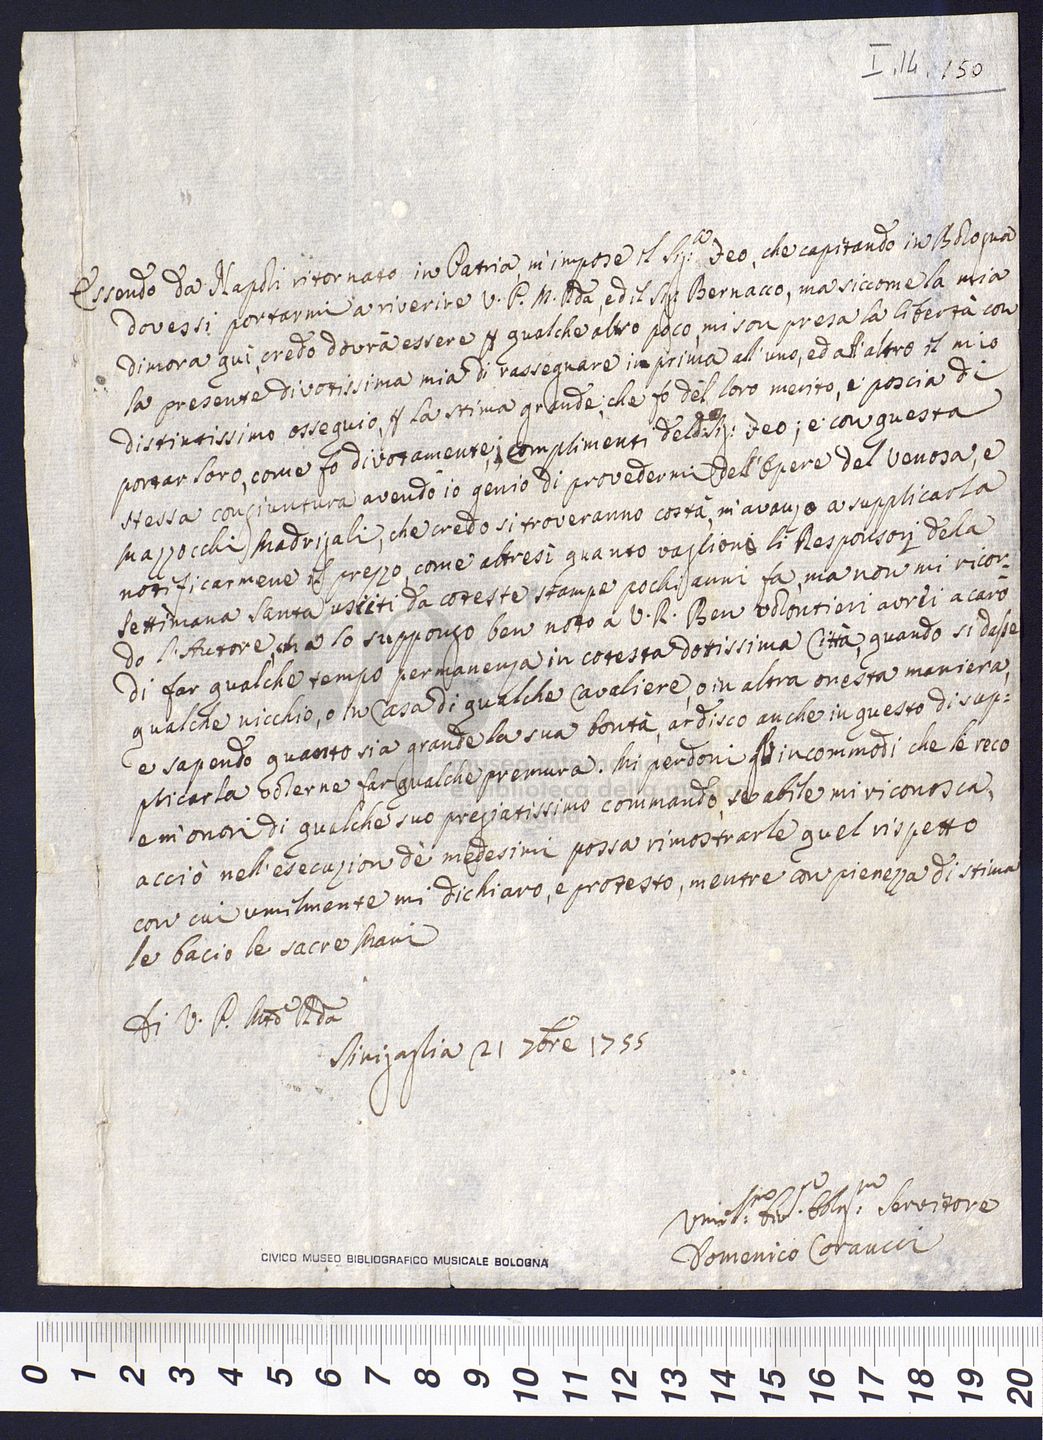 I.14.150
Essendo da Napoli ritornato in Patria m'impose il Sig.r Feo, che capitando in Bologna
dovessi portarmi a riverire V. P. M. Rda, ed il Sig.r Bernacco, ma siccome la mia
dimora qui, credo dovrà essere p qualche altro poco, mi son presa la libertà con
la presente divotissima mia di rassegnare in prima all'uno, ed all'altro il mio
distintissimo ossequio, p la stima grande, che fò del loro merito, e poscia di
portar loro, come fò divotamente, i complimenti del do Sig.r Feo; e con questa
stessa congiuntura avendo io genio di provedermi dell'Opere del Venosa, e
Mazzocchi Madrigali, che credo si troveranno costà, m'avanzo a supplicarla
notificarmene il prezzo, come altresì quanto vaglioni li Responsorj della
Settimana Santa usciti da coteste stampe pochi anni fa, ma non mi ricor=
do l'Autore, ma lo suppongo ben noto a V. R. Ben volontieri avrei a caro
di far qualche tempo permanenza in cotesta dottissima Città, quando si dasse
qualche nicchio, o in Casa di qualche Cavaliere, o in altra onesta maniera,
e sapendo quanto sia grande la sua bontà, ardisco anche in questo di sup=
plicarla volerne far qualche premura. Mi perdoni gl'incommodi che le reco
e m'onori di qualche suo pregiatissimo commando, se abile mi riconosca,
acciò nell'esecuzion dè medesimi possa rimostrarle quel rispetto
con cui umilmente mi dichiaro, e protesto, mentre con pienezza di stima
le bacio le sacre Mani
Di V. P. Mto Rda
Sinigaglia 21 7bre 1755
Servitore
Domenico Coraucci
CIVICO MUSEO BIBLIOGRAFICO MUSICALE BOLOGNA
museo internazionale
e biblioteca della musica
0 1 2 3 4 5 6 7 8 9 10 11 12 13 14 15 16 17 18 19 20